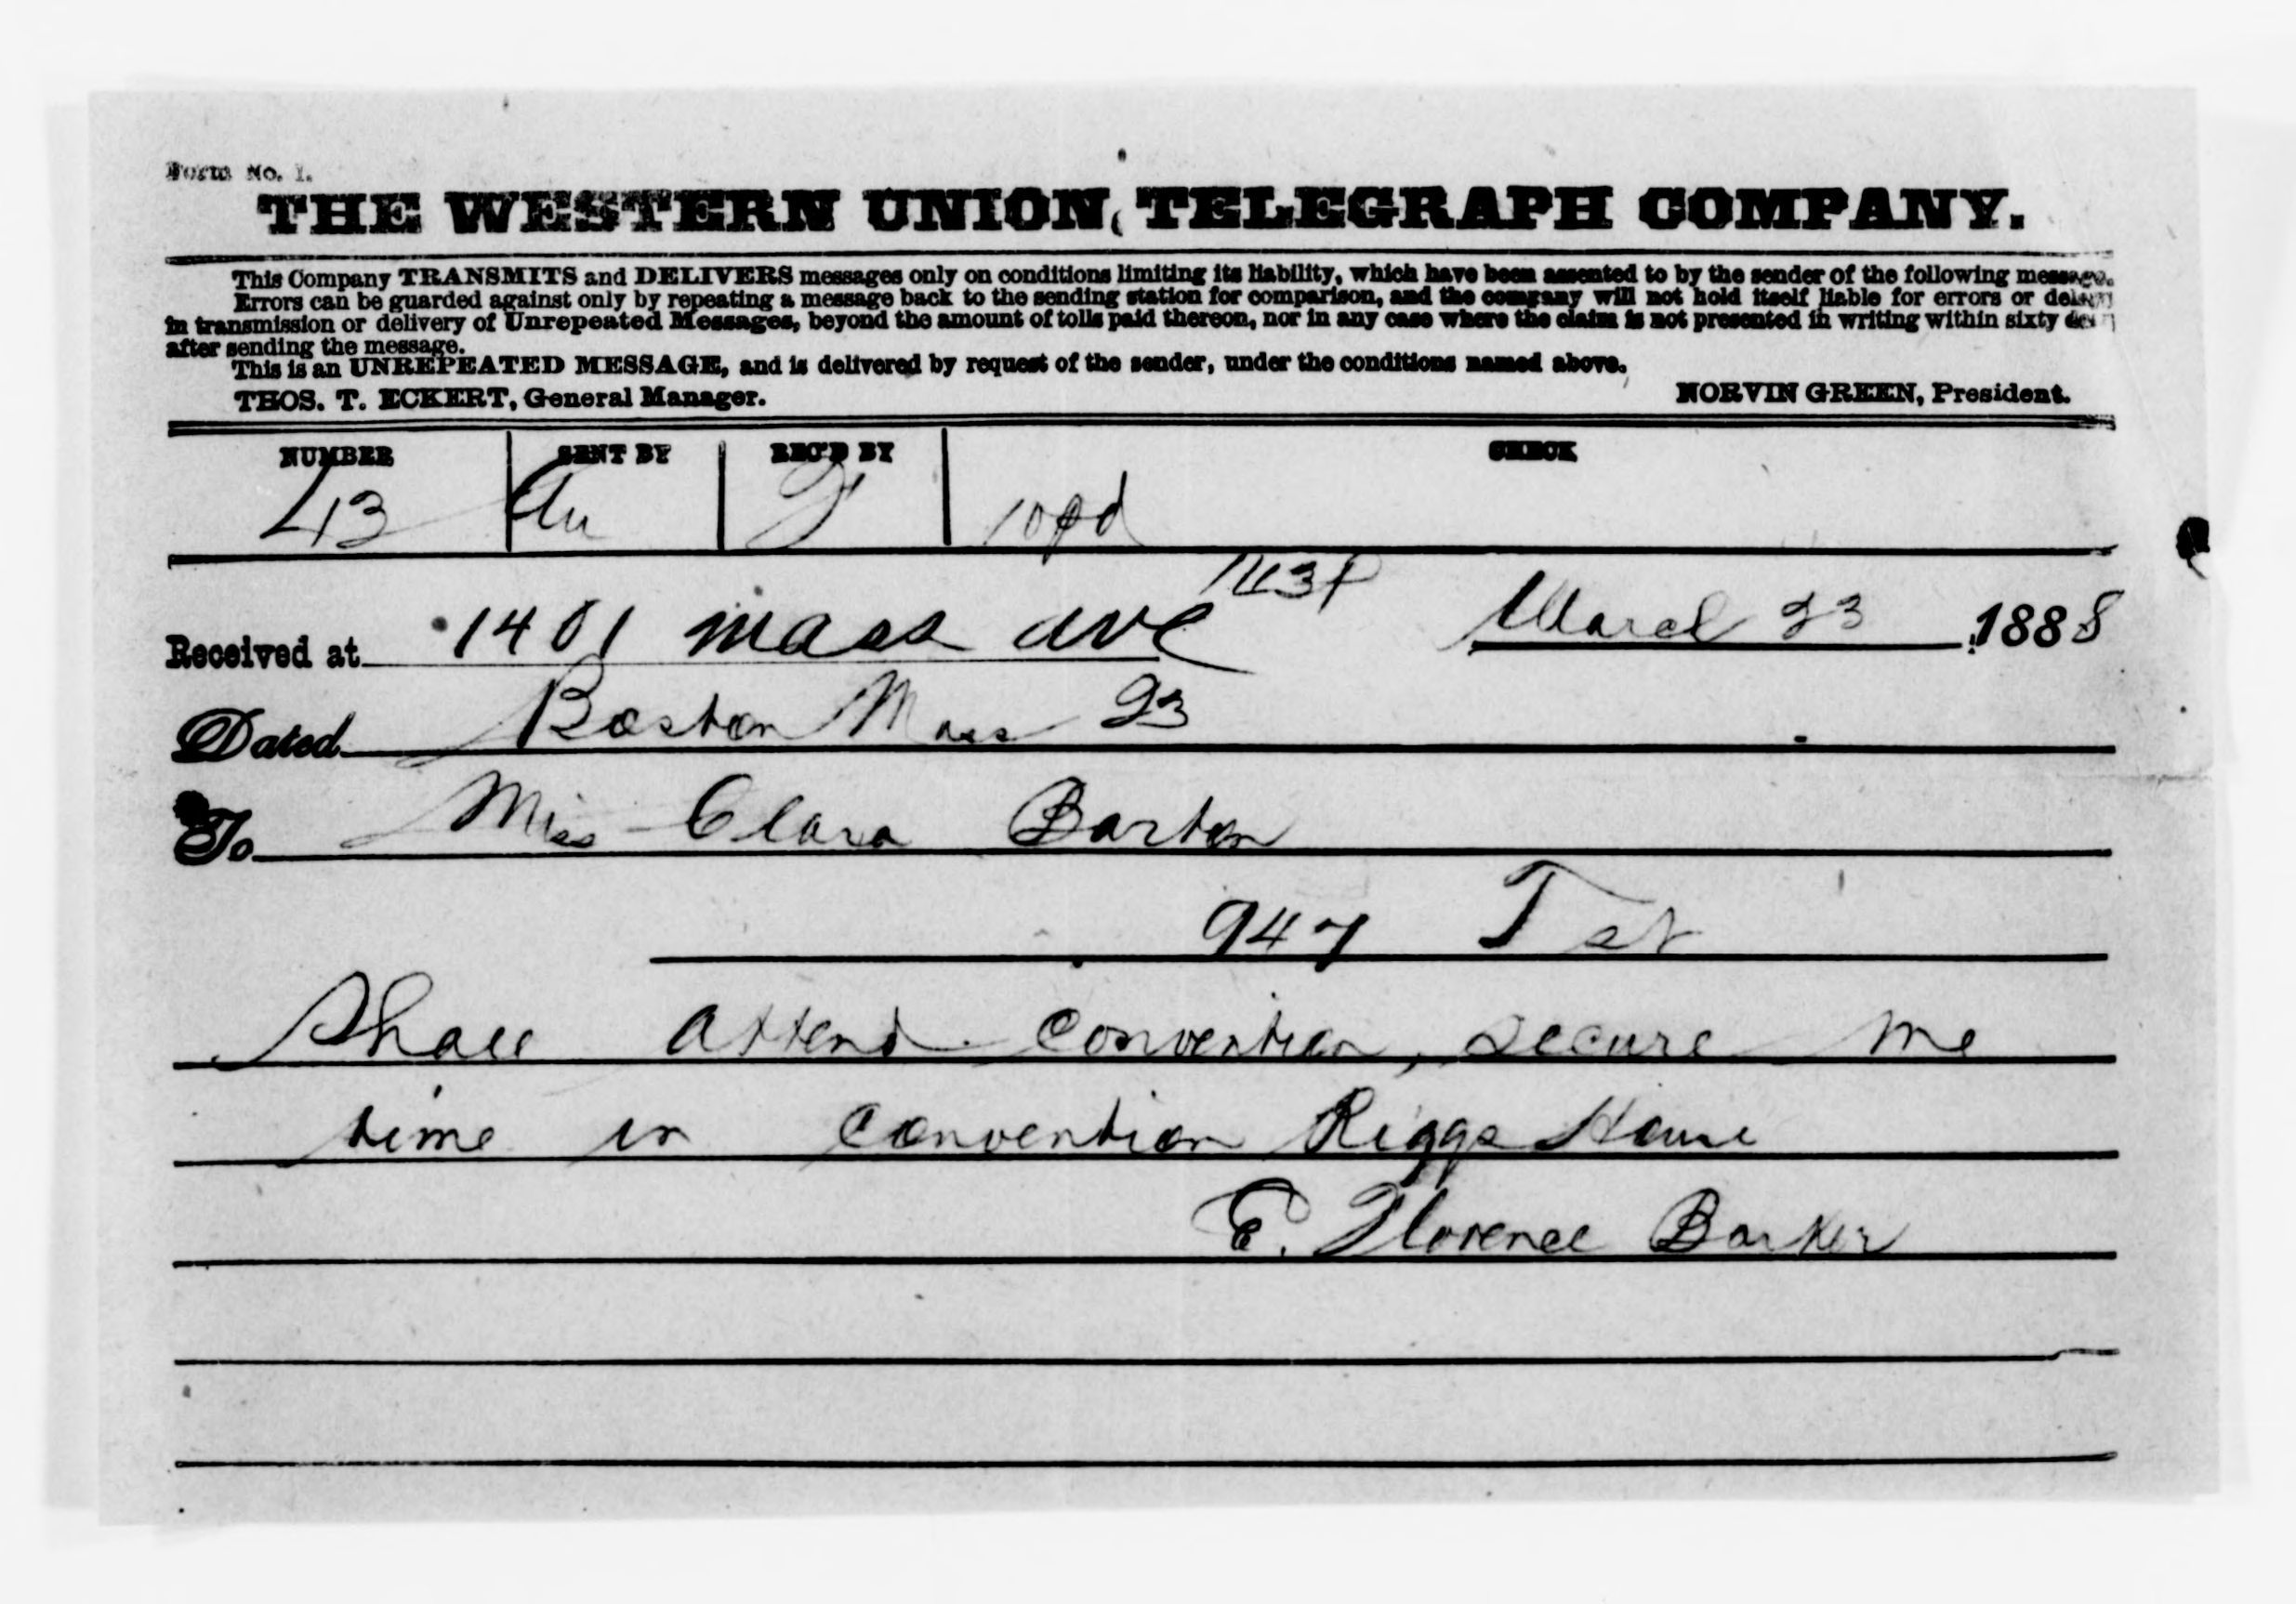 Form No. 1.
THE WESTERN UNION TELEGRAPH COMPANY.
This Company TRANSMITS and DELIVERS messages only on conditions limiting its liability, which have been assented to by the sender of the following message.
Errors can be guarded against only by repeating a message back to the sending station for comparison, and the company will not hold itself liable for errors or delays
in transmission or delivery of Unrepeated Messages, beyond the amount of tolls paid thereon, nor in any case where the claim is not presented in writing within sixty days
after sending the message.
This is an UNREPEATED MESSAGE, and is delivered by request of the sender, under the conditions named above.
THOS. T. ECKERT, General Manager. NORVIN GREEN, President.
NUMBER SENT BY REC'D BY CHECK
43 10 pd
Received at 1401 Mass ave March 23 1888
Dated Boston Mass 23
To Miss Clara Barton
947 T st
Shall attend convention, secure me
time in convention Riggs House
E. Florence Barker